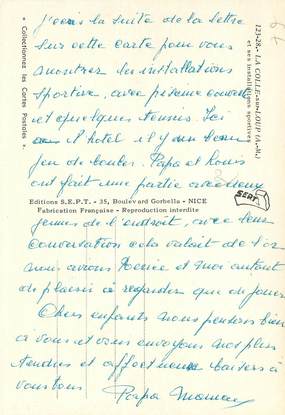 j'écris la suite de la lettre
sur cette carte pour vous
montrer les installations
sportive, avec piscine couverte
et quelques tennis. Ici
à l hotel il y a un beau
jeu de boules. Papa et Louis
ont fait une partie avec deux
jeunes de l'endroit, avec leur
conversation cela valait de l'or
nous avons et moi autant
de plaisir à regarder que de jouer
Chers enfants nous pensons bien
à vous et vous envoyons nos plus
tendres et affectueux baisers à
vous tous Papa Maman
125-28. - LA COLLE-sur-LOUP (A.-M.)
et ses installations sportives
« Collectionnez les Cartes Postales »
Editions S.E.P.T. - 35, Boulevard Gorbella - NICE
Fabrication Française - Reproduction interdite
SEPT